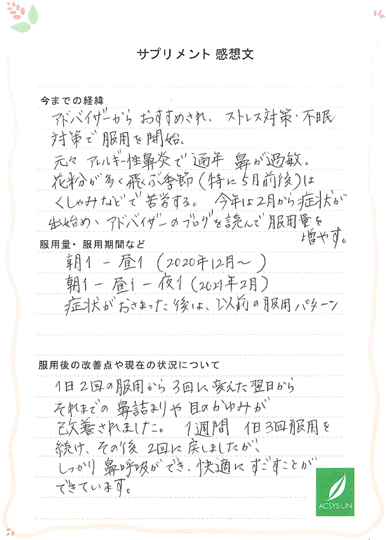 サプリメント 感想文
今までの経緯
アドバイザーから おすすめされ、ストレス対策・不眠
対策で 服用を開始、
元々 アレルギー性鼻炎で 通年 鼻が過敏。
花粉が多く飛ぶ季節(特に5月前後)は
くしゃみなどで 苦労する。今年は2月から症状が
出始め、アドバイザーのブログを読んで服用量を
増やす。
服用量・服用期間など
朝1 - 昼1 (2020年12月〜)
朝1 - 昼1 - 夜1 (2021年2月)
症状がおさまった後は、以前の服用パターン
服用後の改善点や現在の状況について
1日2回の服用から 3回に変えた翌日から
それまでの 鼻詰まりや 目のかゆみが
改善されました。 1週間 1日3回服用を
続け、その後 2回に戻しましたが、
しっかり 鼻呼吸ができ、快適に すごすことが
できています。
ACSYSUN